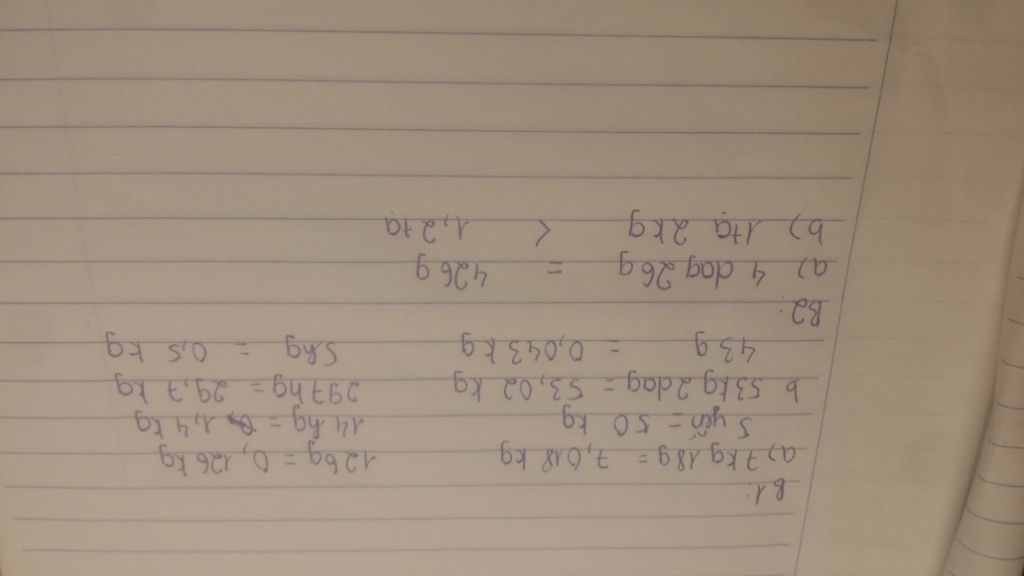 B1:
a) 7kg 18g = 7,018 kg 126g = 0,126kg
5 yến = 50 kg 14hg = 1,4 kg
b 53kg 2dag = 53,02 kg 297hg = 29,7 kg
43g = 0,043kg 5hg = 0,5 kg
B2:
a) 4 dag 26g = 426g
b) 1tạ 2kg < 1,2tạ